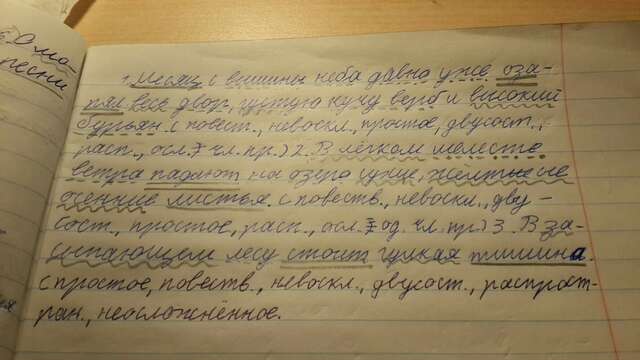 О мо-
песни
1. Месяц с вышины неба давно уже оза-
рял весь двор, густую кучу верб и высокий
бурьян. (повест., невоскл., простое, двусост.,
расп., осл. ≠ чл. пр.) 2. В лёгком шелесте
ветра падают на озеро сухие, желтые о-
сенние листья. (повесть., невоскл., дву-
сост., простое, расп., осл. ≠ од. чл. пр.) 3. В за-
сыпающем лесу стоит гулкая тишина.
(простое, повеств., невоскл., двусост., распрост-
ран., неосложнённое.